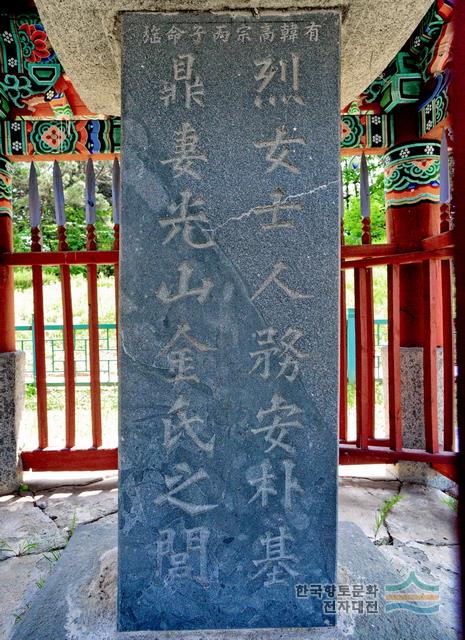 有韓高宗丙子命旌
烈女士人務安朴基
鼎妻光山金氏之閭
한국향토문화
전자대전